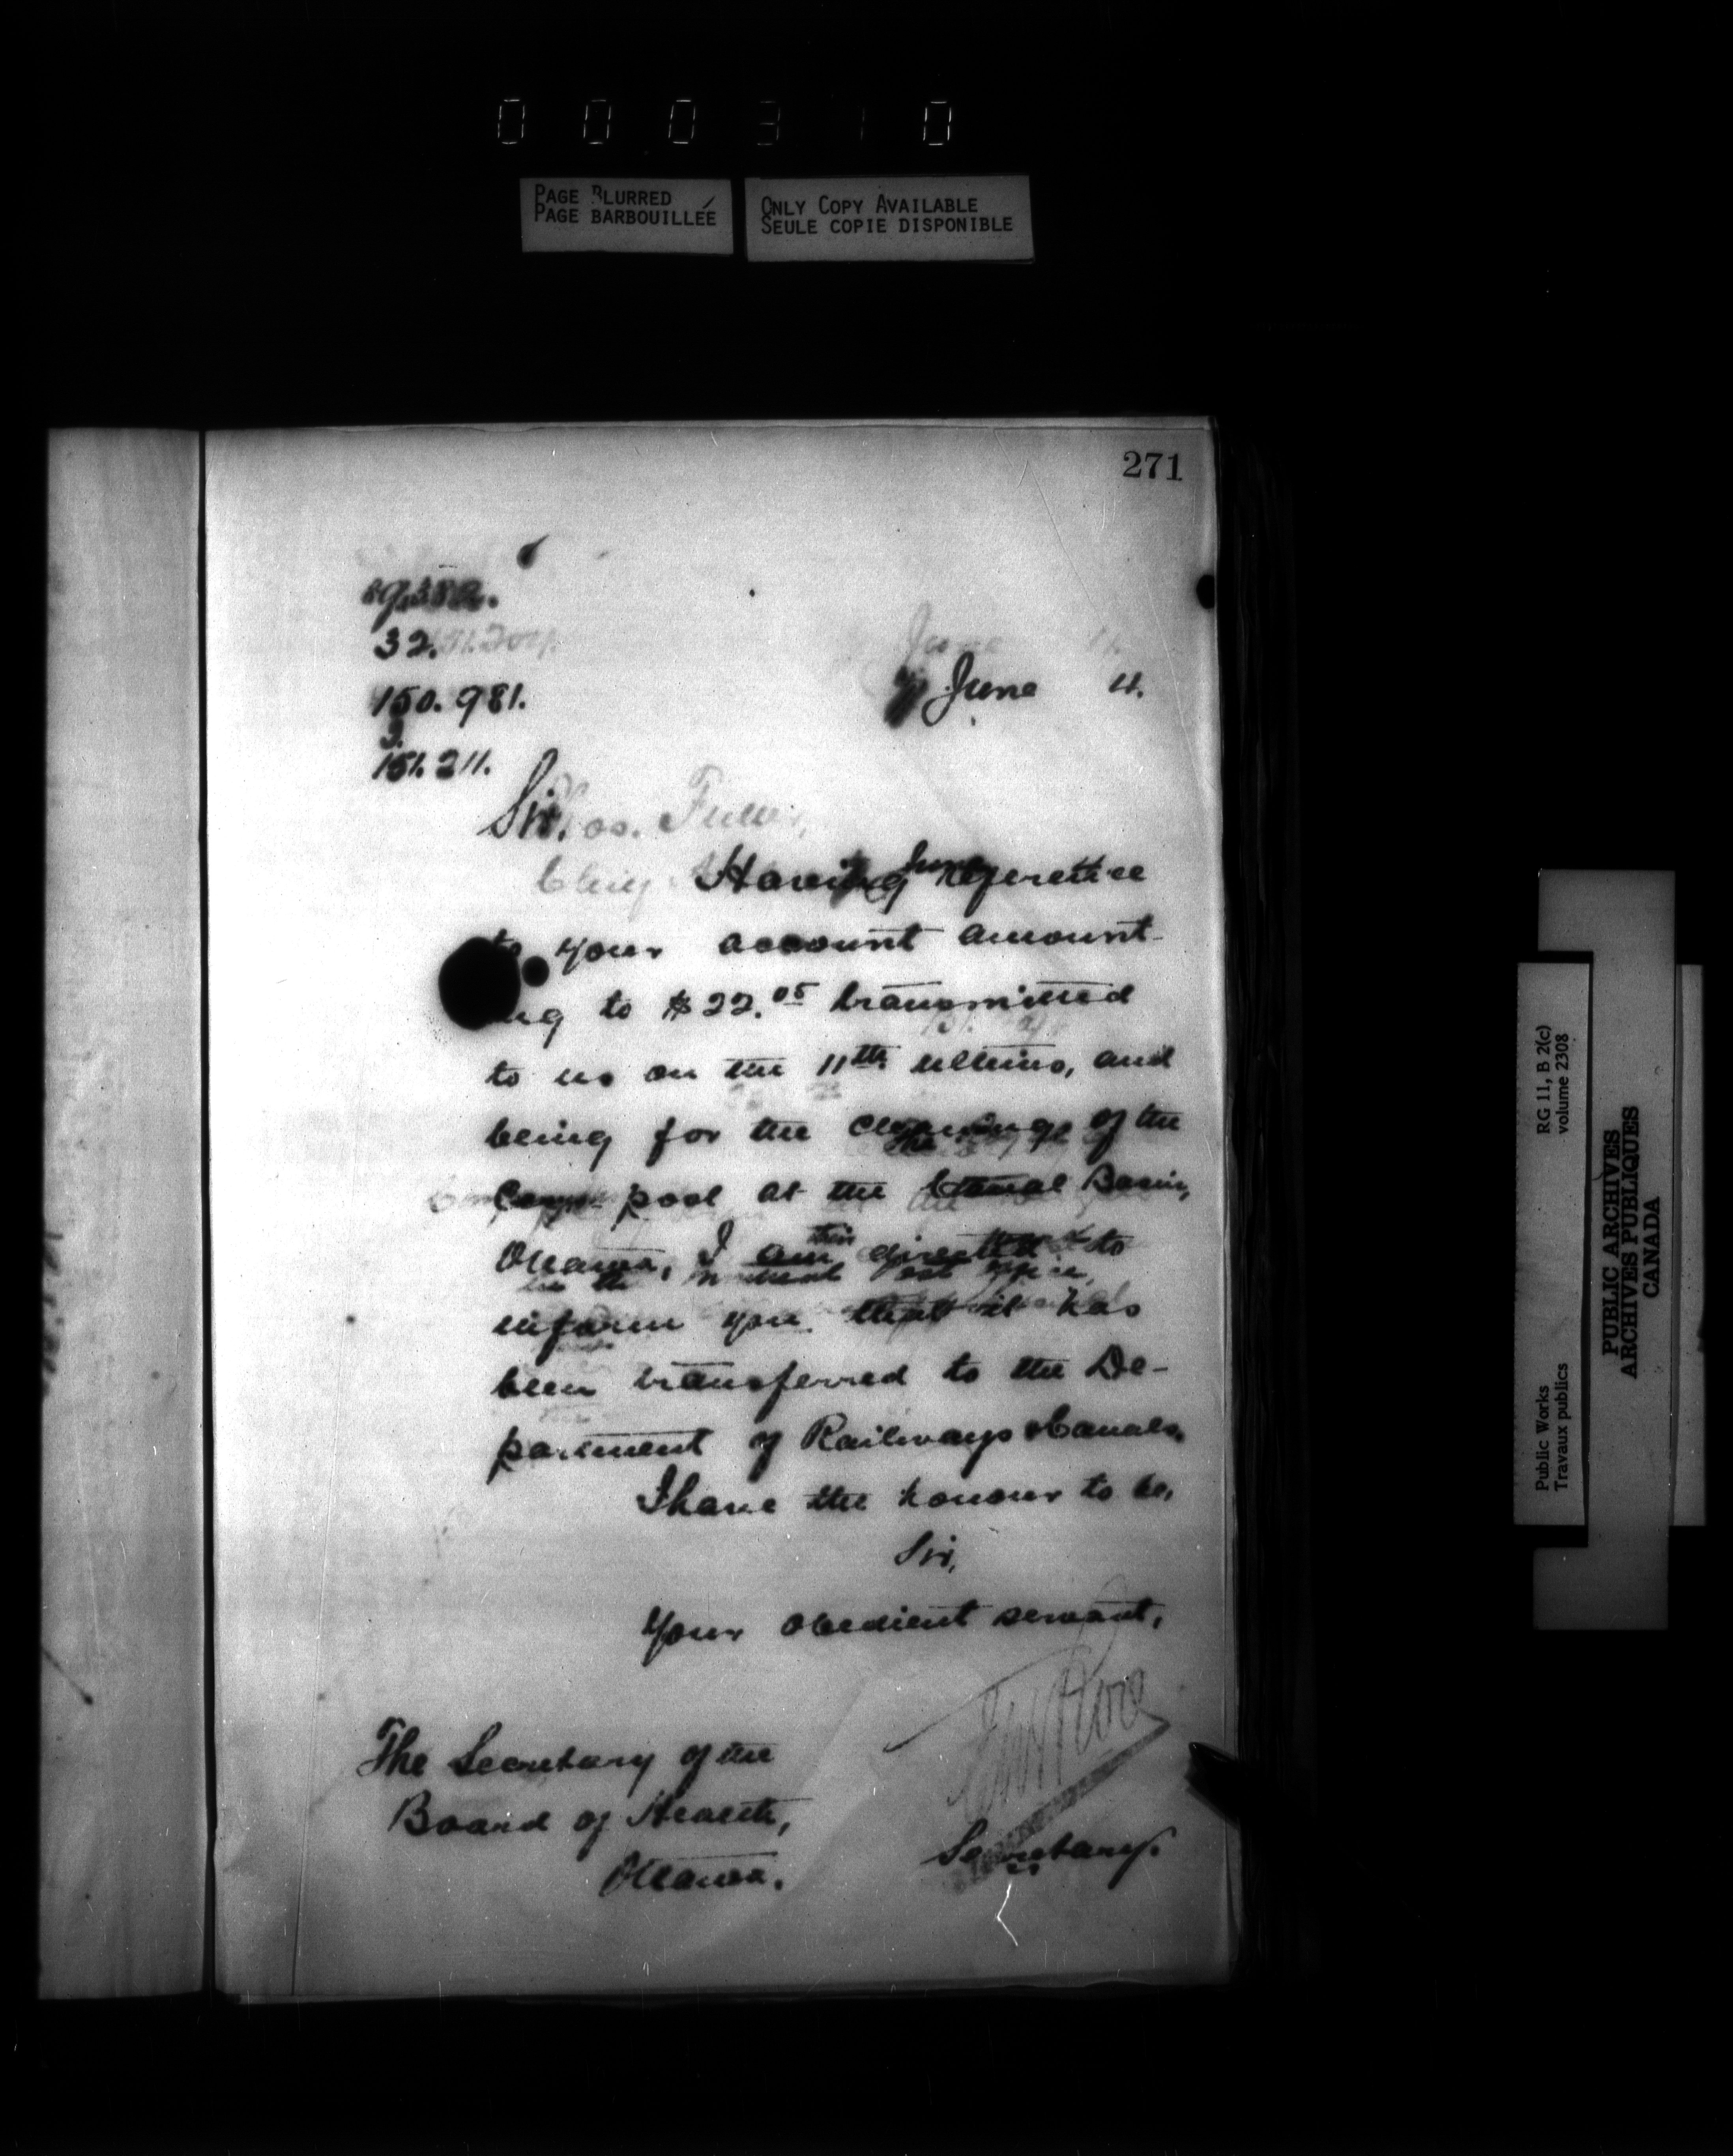 000310
PAGE BLURRED
PAGE BARBOUILLÉE
ONLY COPY AVAILABLE
SEULE COPIE DISPONIBLE
271
32.
150.981.
June 4.
3.
151.211.
Sir,
Having reference
to your account amount-
ing to $22.05 transmitted
to us on the 11th ultimo, and
being for the cleaning of the
pool at the Canal Basin,
Ottawa, I am directed to
inform you that it has
been transferred to the De-
partment of Railways & Canals.
I have the honour to be,
Sir,
Your obedient servant,
The Secretary of the
Board of Health,
Ottawa.
Secretary.
Public Works
Travaux publics
RG 11, B 2(c)
volume 2308
PUBLIC ARCHIVES
ARCHIVES PUBLIQUES
CANADA